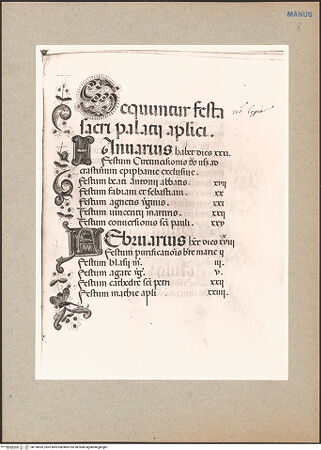 MANUS
8
Sequuntur festa
sacri palatij aplici.
Januarius habet dies xxxi.
Festum Circuncisionis dñi usq; ad
Festum beati Antonij abbatis. xvij
Festum fabiani et sebastiani. xx
Festum agnetis virginis. xxi
Festum vincentij martiris. xxij
Festum conversionis sci pauli. xxv
Februarius
Festum purificatiois bte marie ij
Festum blasij iij.
Festum agate v.
Festum cathedre sci petri xxij
Festum mathie apli xxiiij.